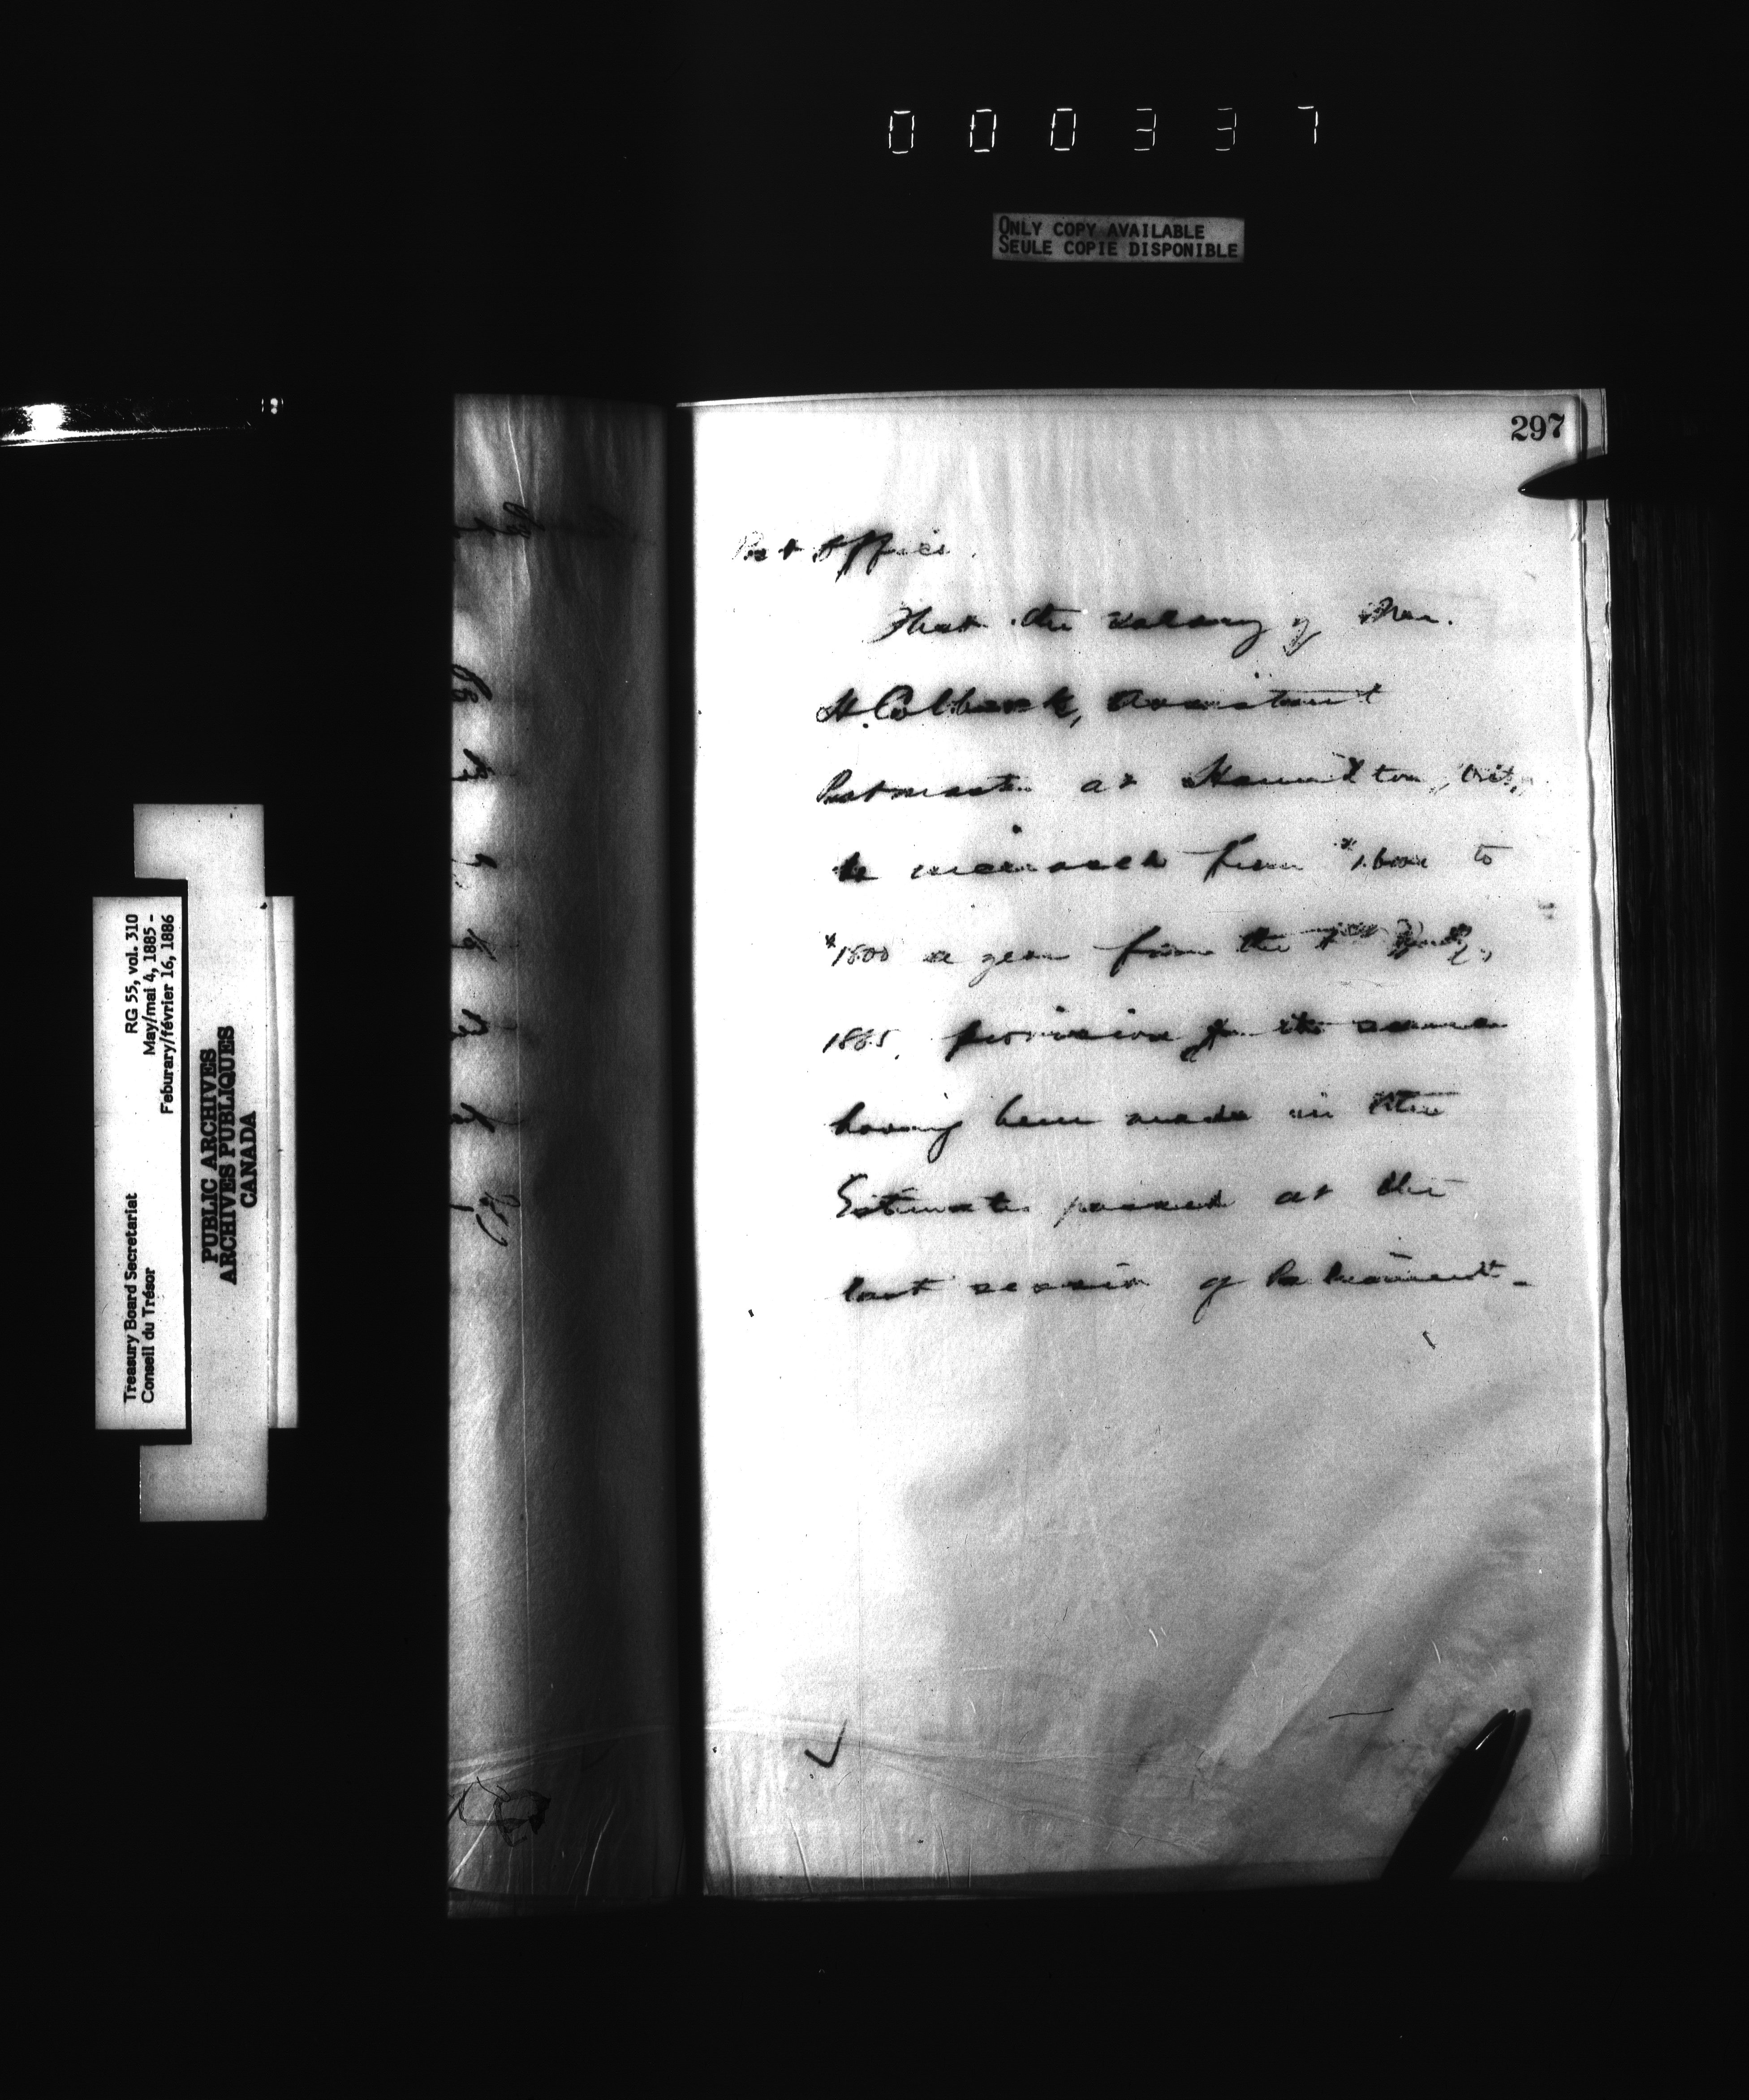 000337
ONLY COPY AVAILABLE
SEULE COPIE DISPONIBLE
297
Post Office.
That the salary of Mr.
H. Colbeck, Assistant
Postmaster at Hamilton, Ont.,
be increased from $1600 to
$1800 a year from the 1st July,
1885, provision for the same
having been made in the
Estimates passed at the
last session of Parliament.
Treasury Board Secretariat
Conseil du Trésor
RG 55, vol. 310
May/mai 4, 1885 -
Feburary/février 16, 1886
PUBLIC ARCHIVES
ARCHIVES PUBLIQUES
CANADA